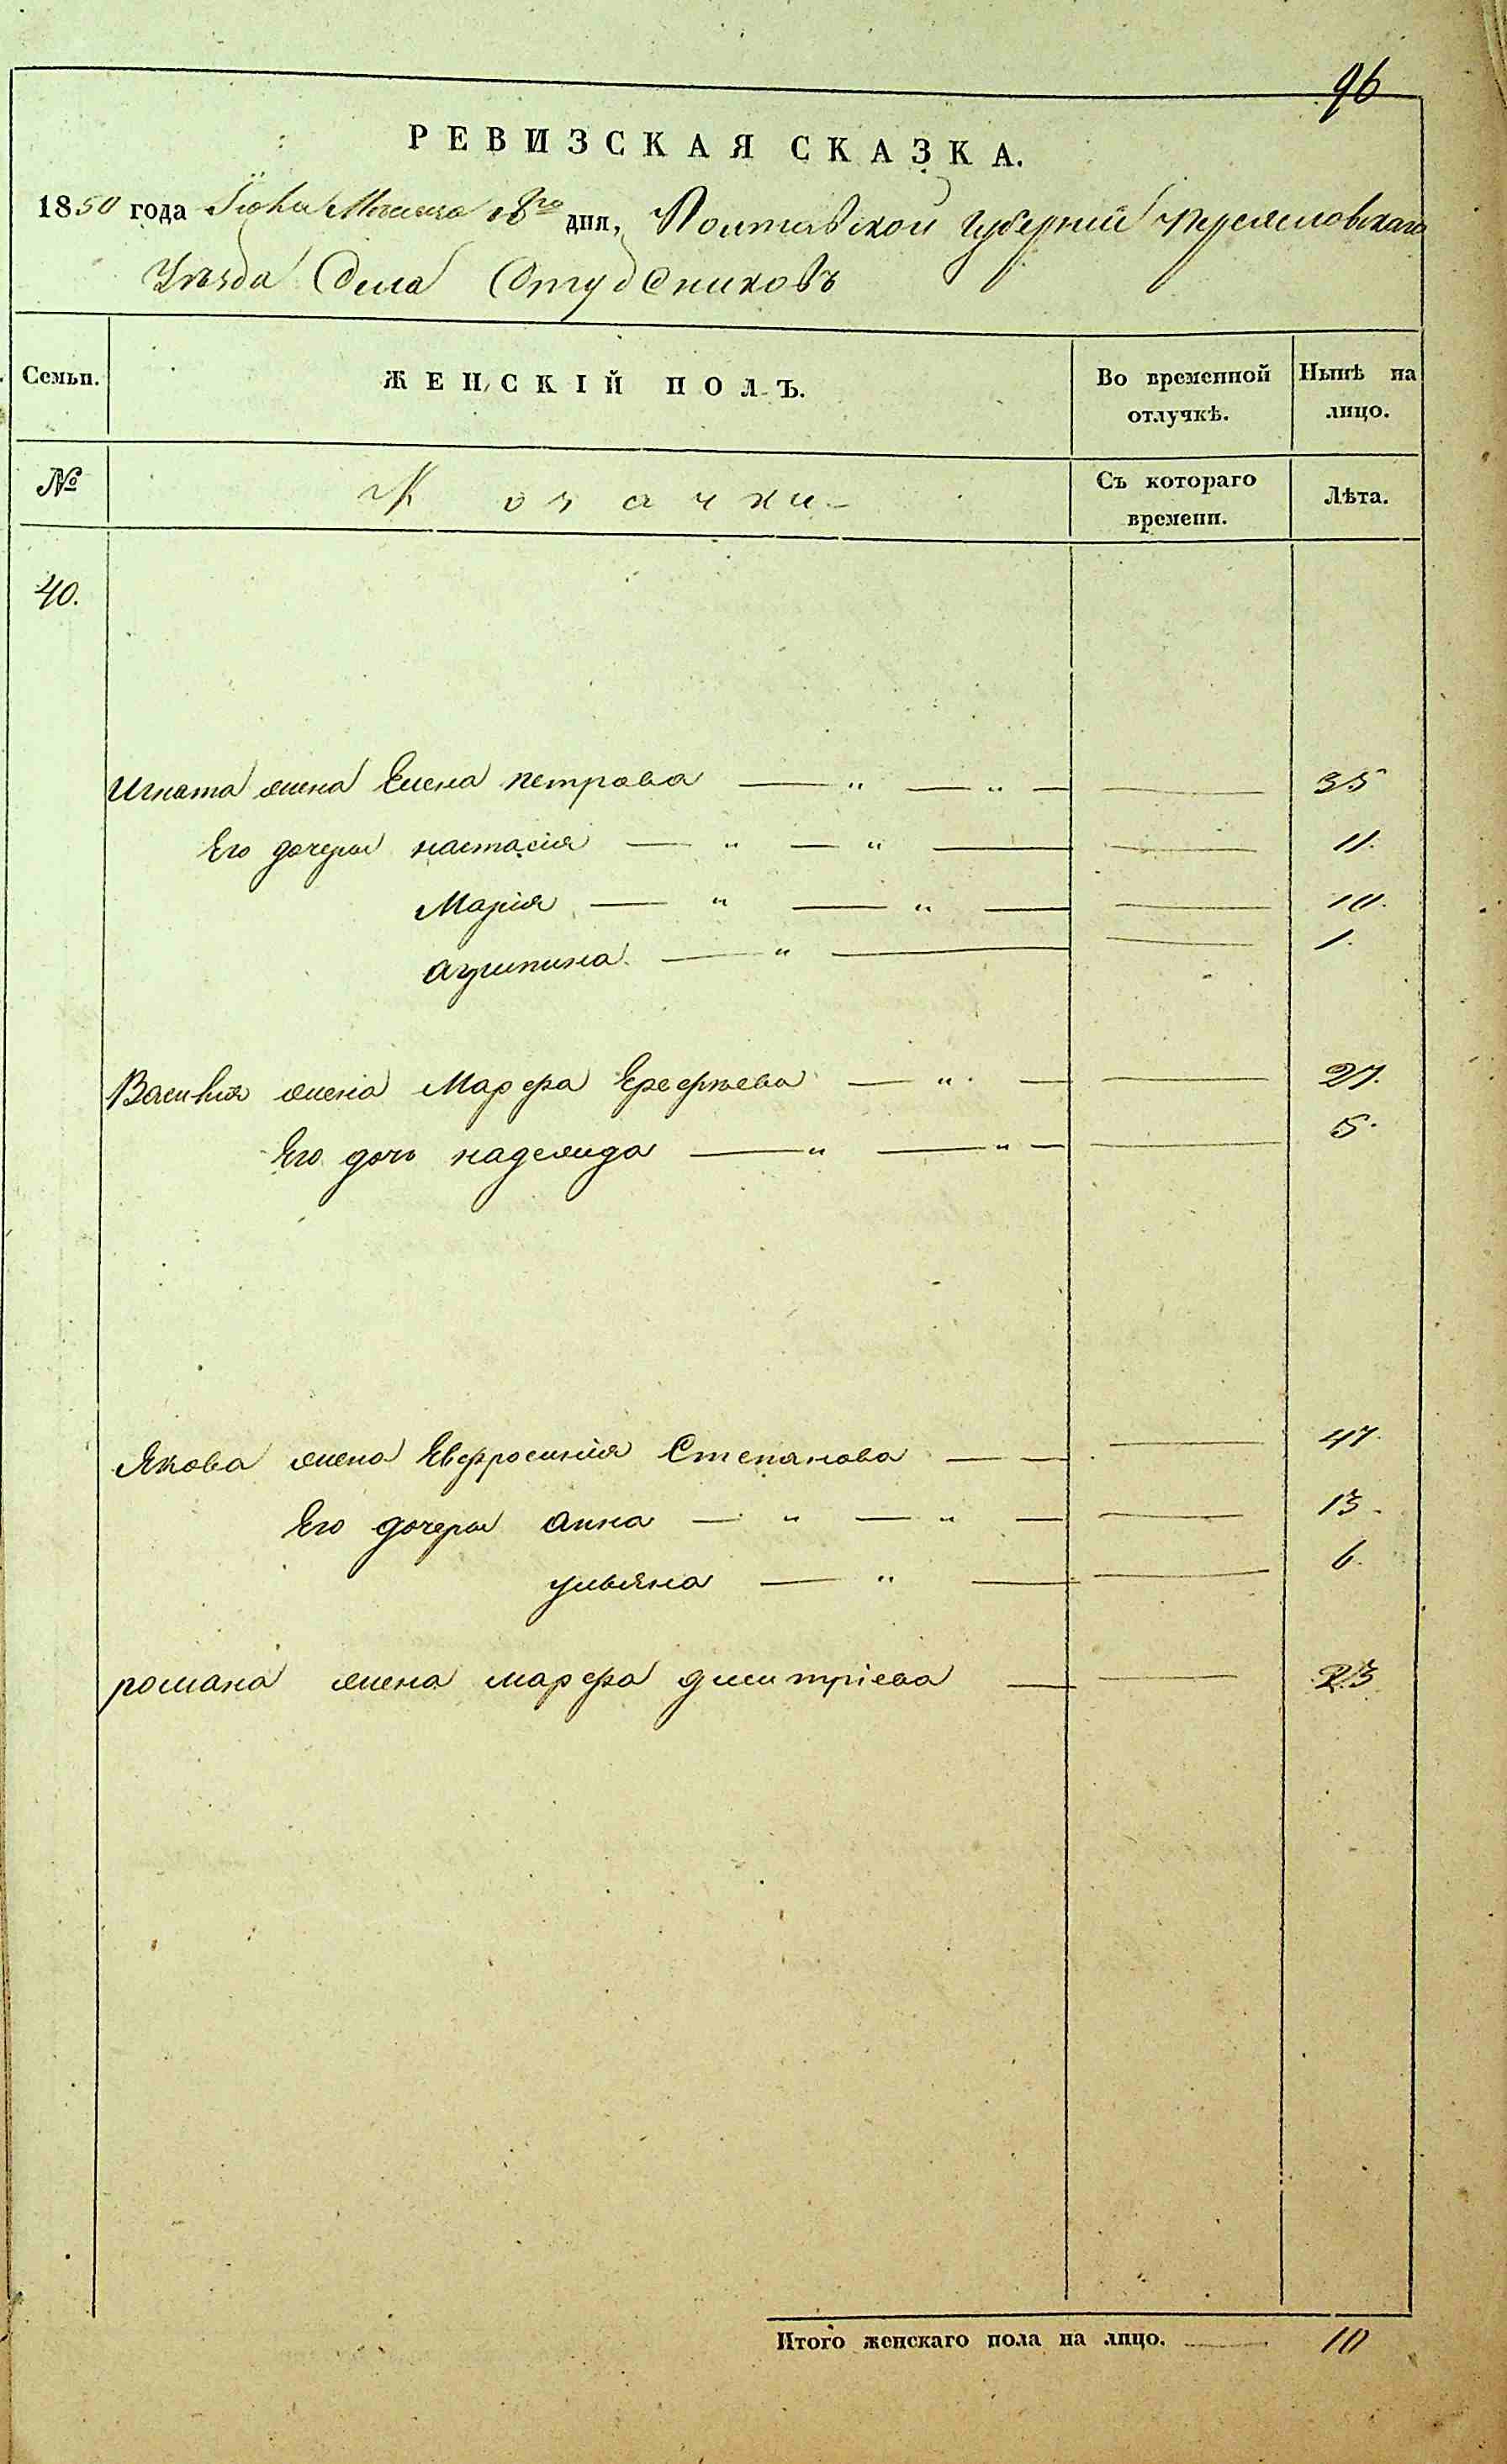 96
РЕВИЗСКАЯ СКАЗКА.
1850 года Месяца 18го дня, Полтавской Губерніи Переясловскаго
Уѣзда Села Студениковъ
Семьи.
ЖЕНСКІЙ ПОЛЪ.
Во временной отлучкѣ.
Нынѣ на лицо.
№
Козачки
Съ котораго времени.
Лѣта.
40.
Игната жена Елена петрова — " — " — — 35
Его дочери настасія — " — " — — 11.
Марія — " — " — — 10.
агрипина. — " — — 1.
Василія жена Марфа Ерефѣева — " — — 27.
Его дочь надежида — " — " — — 5.
Якова жена Евфросинія Степанова — — — 47.
Его дочери анна — " — " — — 13.
ульяна — " — — 6.
романа жена марфа дмитріева — — 23
Итого женскаго пола на лицо. — 10